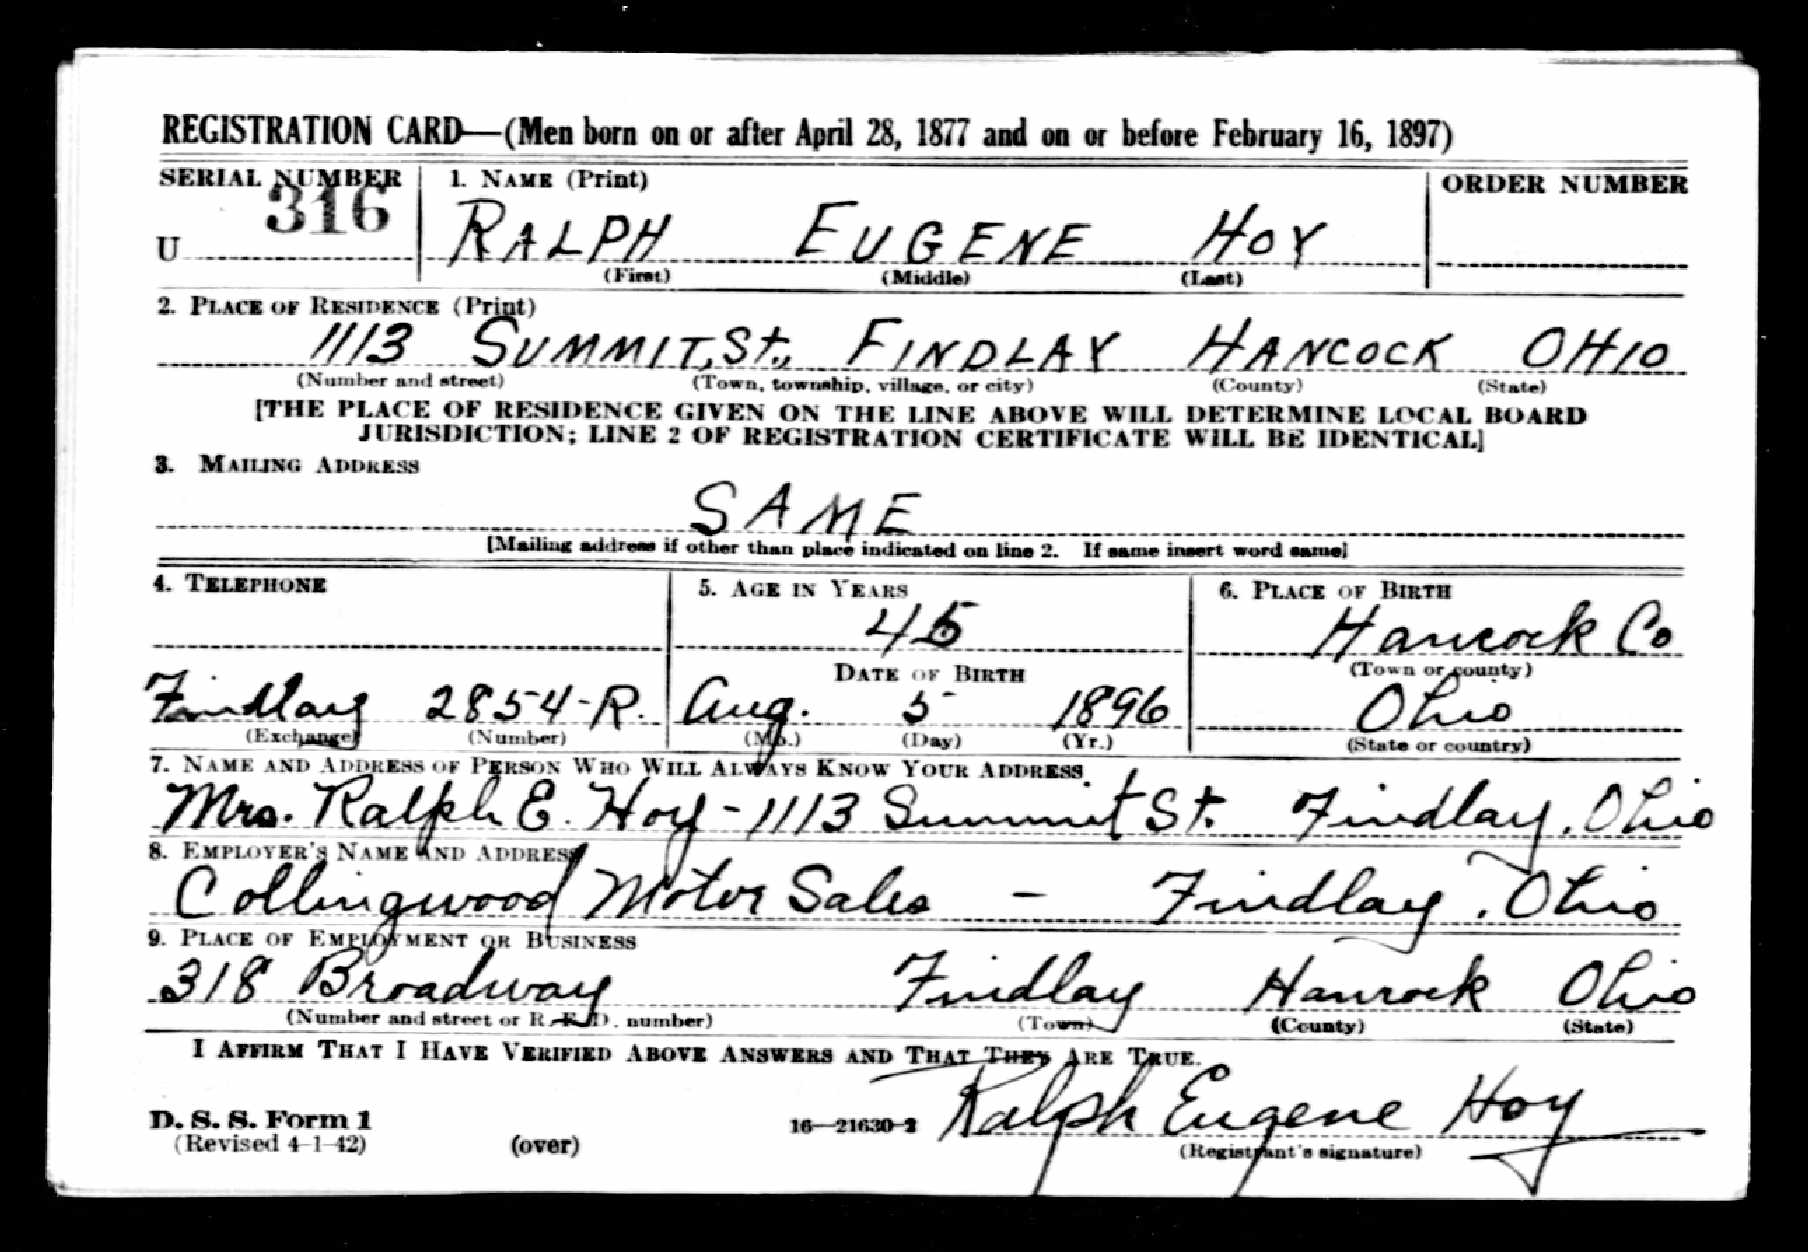 REGISTRATION CARD—(Men born on or after April 28, 1877 and on or before February 16, 1897)
SERIAL NUMBER 1. NAME (Print) ORDER NUMBER
U 316 RALPH EUGENE HOY
(First) (Middle) (Last)
2. PLACE OF RESIDENCE (Print)
1113 SUMMIT, St., FINDLAY HANCOCK OHIO
(Number and street) (Town, township, village, or city) (County) (State)
[THE PLACE OF RESIDENCE GIVEN ON THE LINE ABOVE WILL DETERMINE LOCAL BOARD
JURISDICTION; LINE 2 OF REGISTRATION CERTIFICATE WILL BE IDENTICAL]
3. MAILING ADDRESS
SAME
[Mailing address if other than place indicated on line 2. If same insert word same]
4. TELEPHONE 5. AGE IN YEARS 6. PLACE OF BIRTH
45 Hancock Co
DATE OF BIRTH (Town or county)
Findlay 2854-R. Aug. 5 1896 Ohio
(Exchange) (Number) (Mo.) (Day) (Yr.) (State or country)
7. NAME AND ADDRESS OF PERSON WHO WILL ALWAYS KNOW YOUR ADDRESS
Mrs. Ralph E. Hoy - 1113 Summit St. Findlay, Ohio
8. EMPLOYER'S NAME AND ADDRESS
Collingwood Motor Sales - Findlay, Ohio
9. PLACE OF EMPLOYMENT OR BUSINESS
318 Broadway Findlay Hancock Ohio
(Number and street or R. F. D. number) (Town) (County) (State)
I AFFIRM THAT I HAVE VERIFIED ABOVE ANSWERS AND THAT THEY ARE TRUE.
D. S. S. Form 1
(Revised 4-1-42) (over) 16—21630-2 Ralph Eugene Hoy
(Registrant's signature)